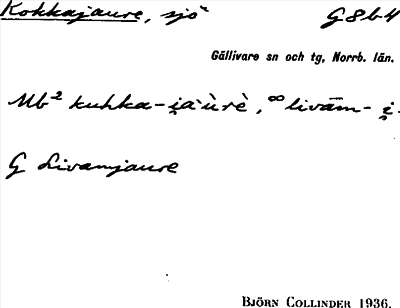 Kokkajaure, sjö G8b4
Gällivare sn och tg, Norrb. län.
Mb² kuhka-i̯a`ùrè, ∞ livām- i̯.
G Livamjaure
BJÖRN COLLINDER 1936.